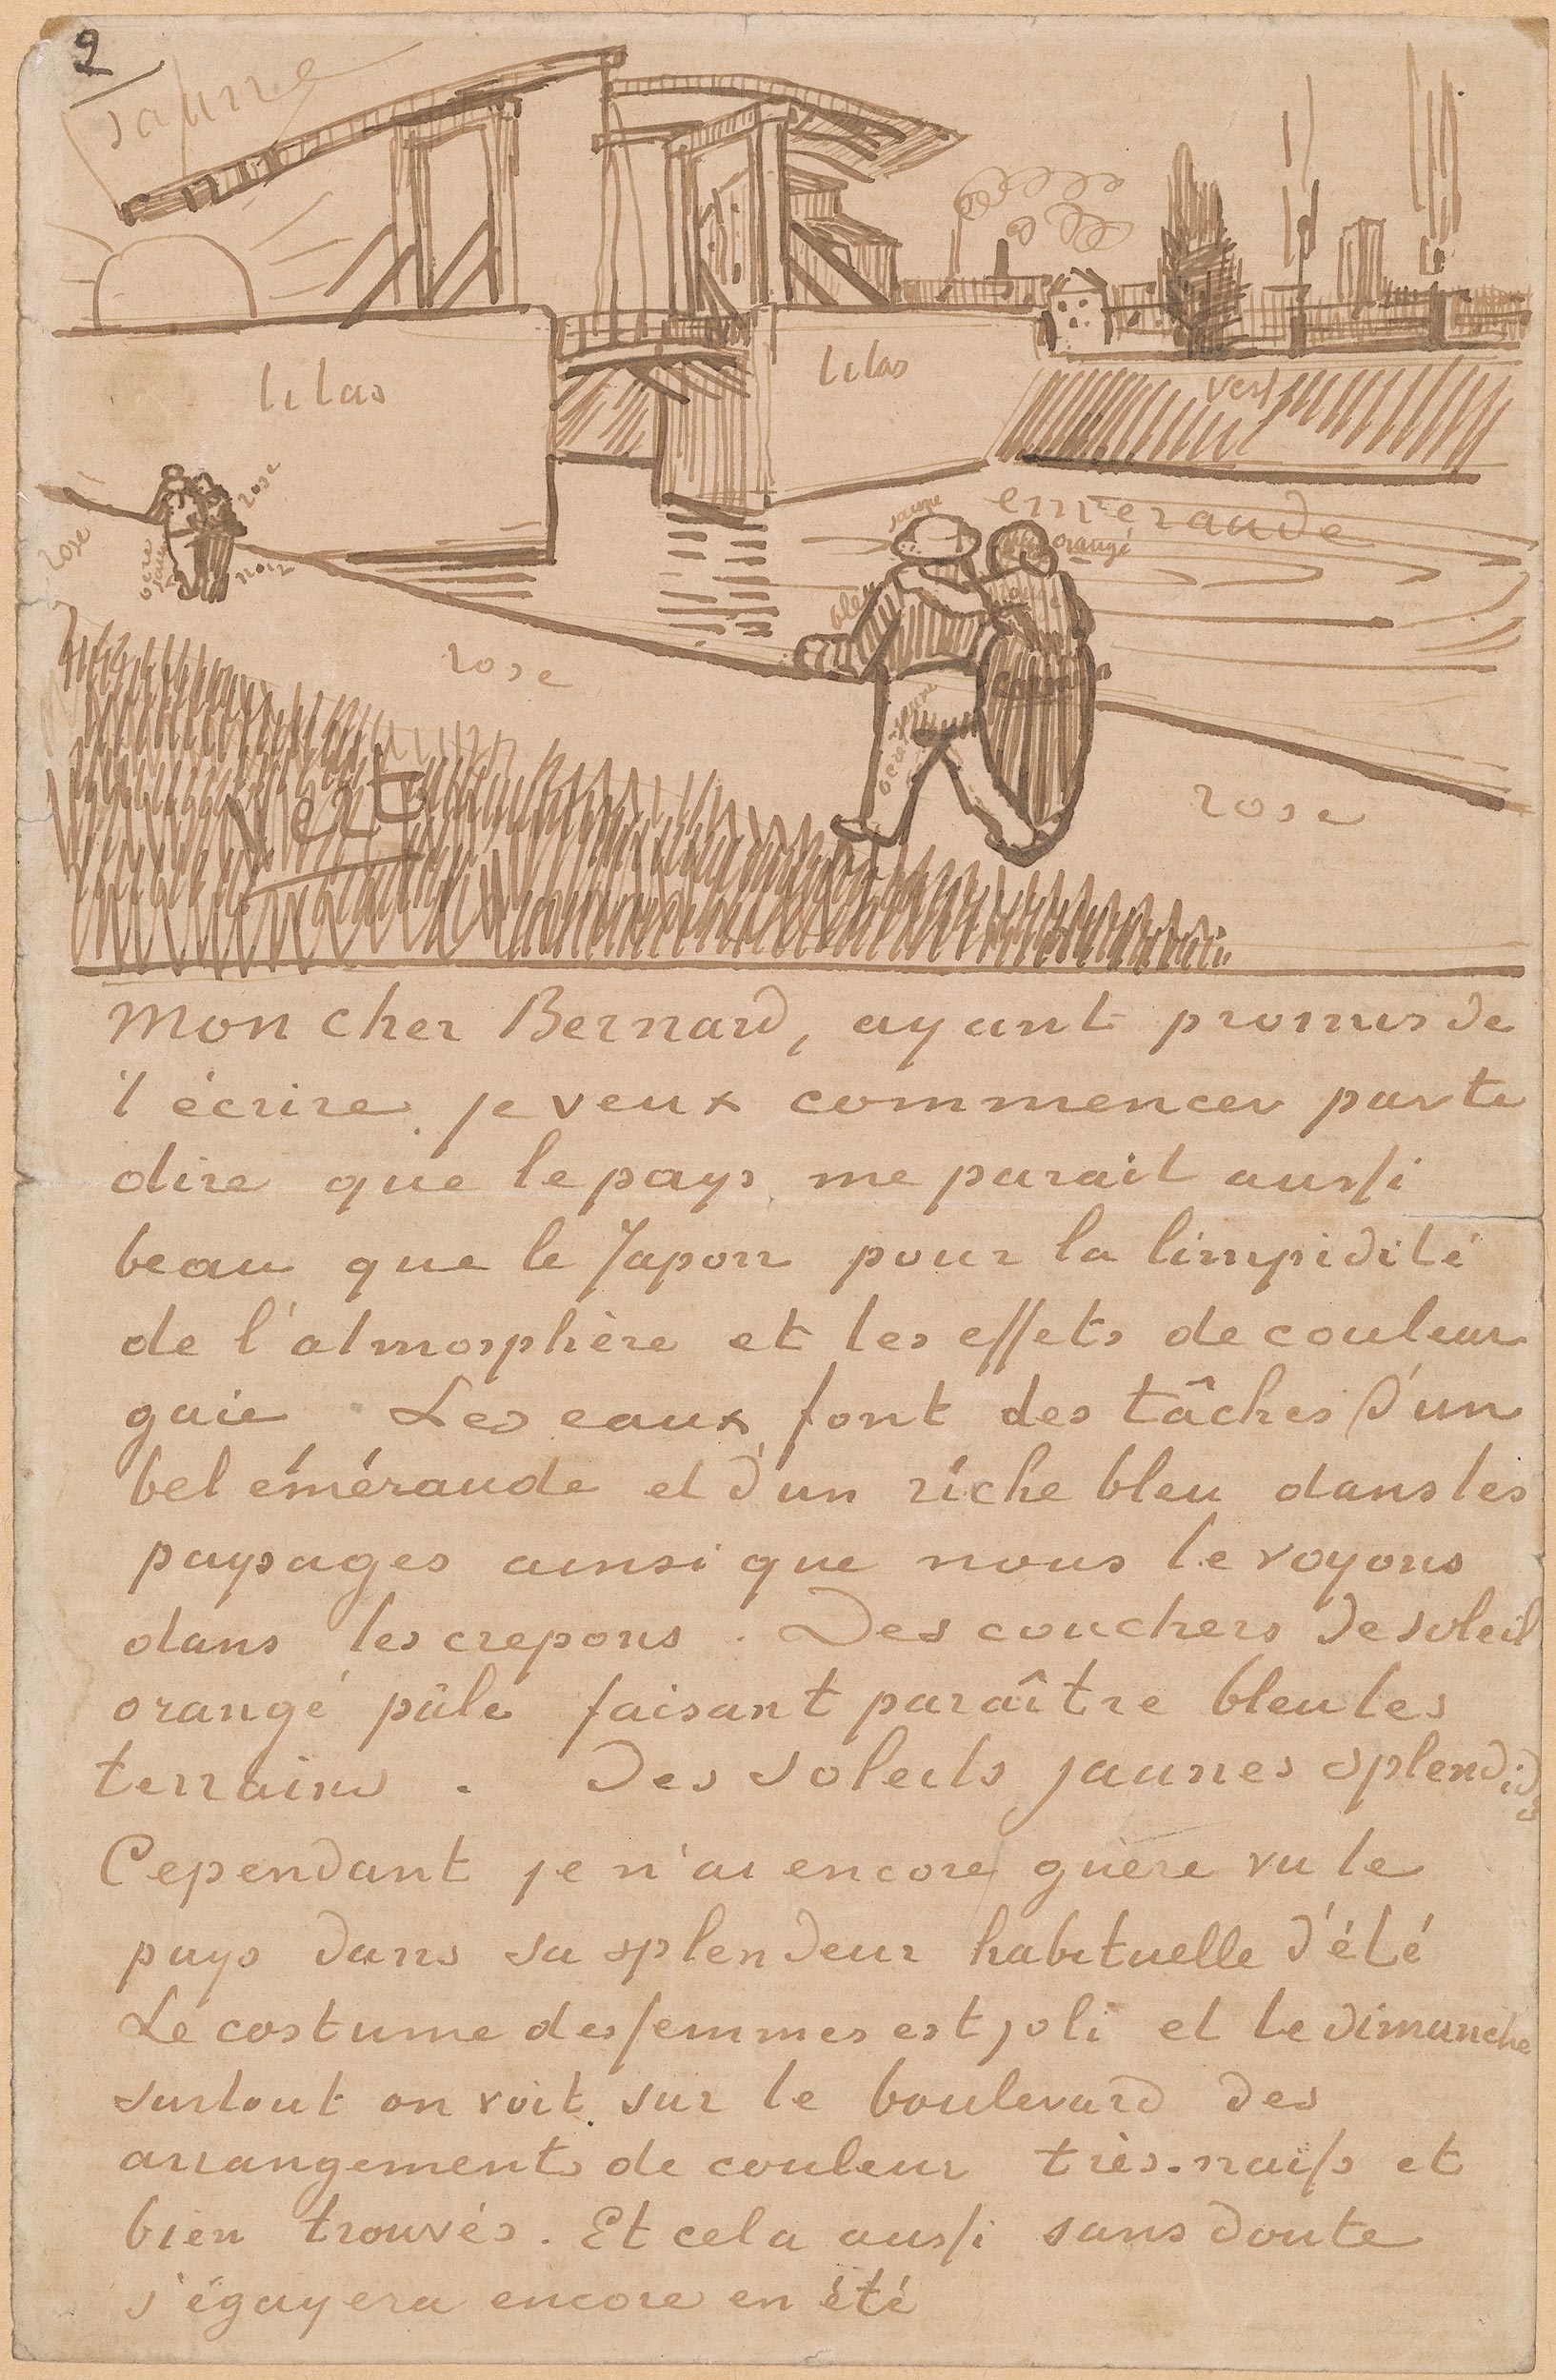 2
jaune
lilas
lilas
vert
rose
rose
noir
ocre
jaune
emeraude
jaune
orangé
bleu
ocre
jaune
rose
rose
vert
Mon cher Bernard, ayant promis de
t'écrire je veux commencer par te
dire que le pays me parait aussi
beau que le Japon pour la limpidité
de l'atmosphère et les effets de couleur
gaie. Les eaux font des tâches d'un
bel éméraude et d'un riche bleu dans les
paysages ainsi que nous le voyons
dans les crepons. Des couchers de soleil
orangé pâle faisant paraître bleu les
terrains. Des soleils jaunes splendides
Cependant je n'ai encore guère vu le
pays dans sa splendeur habituelle d'été
Le costume des femmes est joli et le dimanche
surtout on voit sur le boulevard des
arrangements de couleur très naïfs et
bien trouvés. Et cela aussi sans doute
s'égayera encore en été